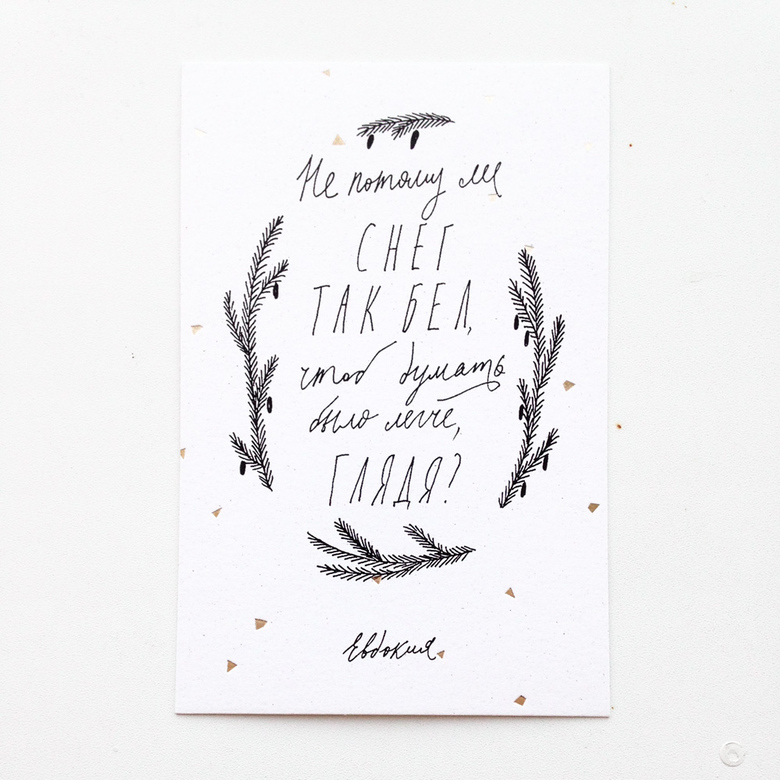 Не потому ли
СНЕГ
ТАК БЕЛ,
чтоб думать
было легче,
ГЛЯДЯ?
Евдокия